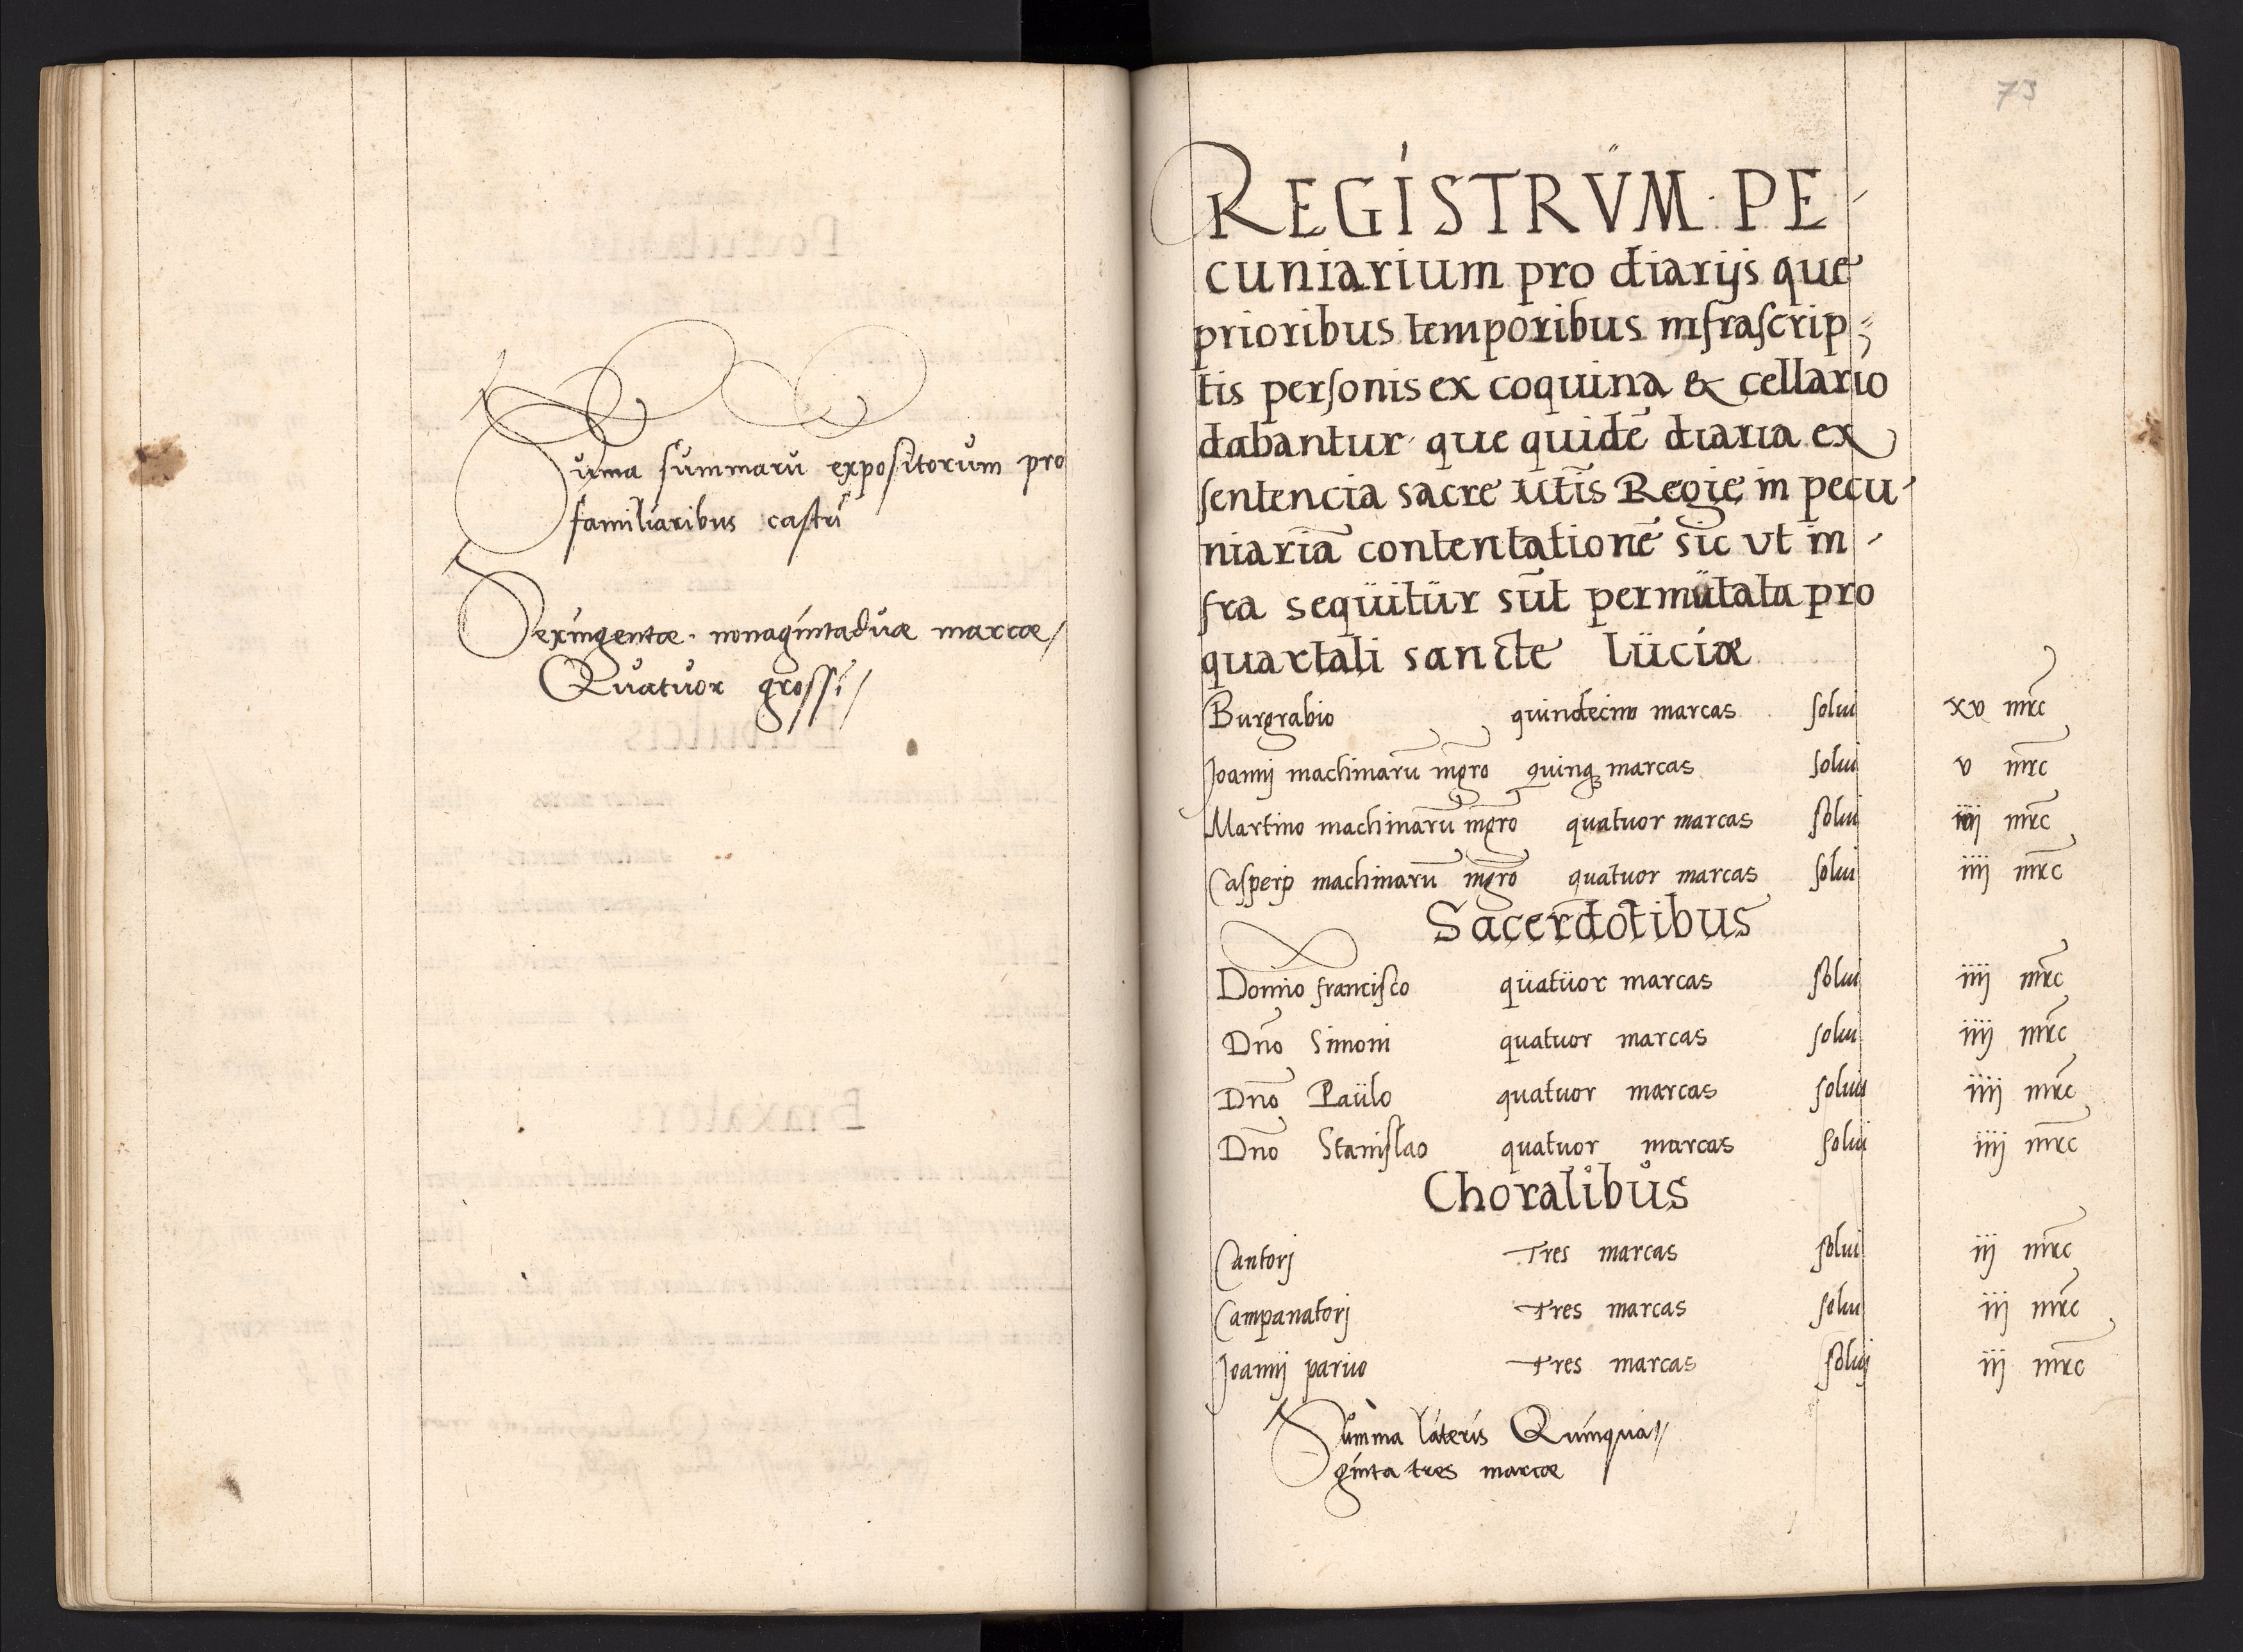 Suma summarū expositorum pro
familiaribus castri
Sexingentæ nonagintaduæ marcæ
Quatuor grossi
73
REGISTRVM PE-
cuniarium pro diarijs que
prioribus temporibus infrascrip=
tis personis ex coquina & cellario
dabantur que quidē diaria ex
sentencia sacre Mtis Regie in pecu-
niariā contentationē sic vt in-
fra sequitur sūt permutata pro
quartali sancte Luciæ
Burgrabio quindecim marcas solui xv mrc
Joannj machinarū mgro quinq marcas solui v mrc
Martino machinarū mgro quatuor marcas solui iiij mrc
Casperp machinarū mgro quatuor marcas solui iiij mrc
Sacerdotibus
Domino francisco quatuor marcas solui iiij mrc
Dno Simoni quatuor marcas solui iiij mrc
Dno Paulo quatuor marcas solui iiij mrc
Dno Stanislao quatuor marcas solui iiij mrc
Choralibus
Cantorj Tres marcas solui iij mrc
Campanatorj Tres marcas solui iij mrc
Joannj paruo Tres marcas soluj iij mrc
Summa lateris Quinqua//
ginta tres marcæ